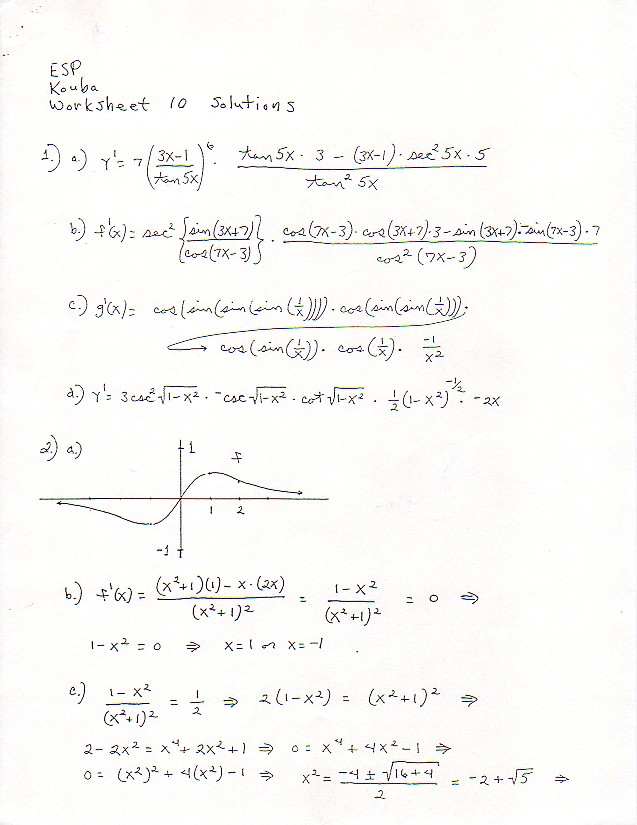 ESP
Kouba
Worksheet 10 Solutions
1.) a.) Y' = 7 ((3x-1)/(tan 5x))^6 · (tan 5x · 3 - (3x-1) · sec² 5x · 5)/(tan² 5x)
b.) f'(x) = sec² {(sin(3x+7))/(cos(7x-3))} · (cos(7x-3) · cos(3x+7) · 3 - sin(3x+7) · -sin(7x-3) · 7)/(cos²(7x-3))
c.) g'(x) = cos(sin(sin(sin(1/x)))) · cos(sin(sin(1/x))) ·
→ cos(sin(1/x)) · cos(1/x) · -1/x²
d.) Y' = 3 csc² √(1-x²) · -csc √(1-x²) · cot √(1-x²) · 1/2 (1-x²)^(-1/2) · -2x
2.) a.) 1 f
1 2
-1
b.) f'(x) = ((x²+1)(1) - x·(2x))/((x²+1)²) = (1-x²)/((x²+1)²) = 0 ⇒
1-x² = 0 ⇒ x=1 or x=-1 .
c.) (1-x²)/((x²+1)²) = 1/2 ⇒ 2(1-x²) = (x²+1)² ⇒
2-2x² = x⁴+2x²+1 ⇒ 0 = x⁴+4x²-1 ⇒
0 = (x²)²+4(x²)-1 ⇒ x² = (-4 ± √(16+4))/2 = -2+√5 ⇒